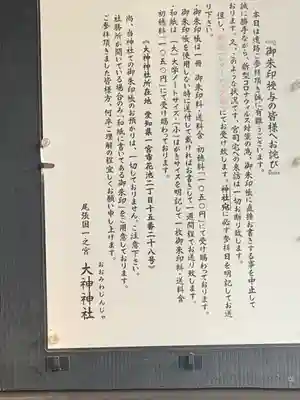 『御朱印授与の皆様へお詫び』
本日は遠路ご参拝頂き誠に有難うございます。
誠に勝手ながら、新型コロナウィルス対策の為、御朱印帳に直接お書きする事を中止して
おります。又、このような状況です、宮司宅への来訪は一切お断り致します。
但し、
にてお受け致します。(神社宛に必ず参拝日を明記してお送
り下さい。)
・御朱印帳は一冊 御朱印料・送料含 初穂料「一〇五〇円」にて受け賜わっております。
御朱印帳を使用しない時に送付して戴ければお書きして一週間程でお送り致します。
・和紙は「大」大学ノートサイズ・「小」はがきサイズを明記して一枚御朱印料・送料含
初穂料「一〇五〇円」にて受け賜わっております。
《大神神社所在地 愛知県一宮市花池二丁目十五番二十八号》
尚、当神社での御朱印帳のお預かりは、一切しておりません、ご注意下さい。
社務所が開いている場合のみ「和紙に書いてある御朱印」をご用意しております。
ご参拝頂きました皆様方、何卒ご理解の程宜しくお願い申し上げます。
尾張国一之宮 大神神社
おおみわじんじゃ